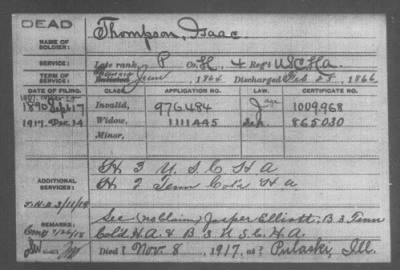 DEAD
NAME OF SOLDIER: Thompson, Isaac
SERVICE: Late rank, P Co. H, 4 Reg't U.S.C.H.A.
TERM OF SERVICE: Enlisted June, 1864 Discharged Feb 25, 1866
DATE OF FILING. CLASS. APPLICATION NO. LAW. CERTIFICATE NO.
1890 Sep 17 Invalid, 976484 1009968
1917. Dec. 14 Widow, 1111445 Sep. 865030
Minor,
ADDITIONAL SERVICES: H 3 U.S.C.H.A
H 2 Tenn Col'd H A.
REMARKS: See (no claim) Jasper Elliott. B 3 Tenn
Col'd. H.A. & B 3 U.S.C.H.A.
Died Nov. 8, 1917, at Pulaski, Ill.